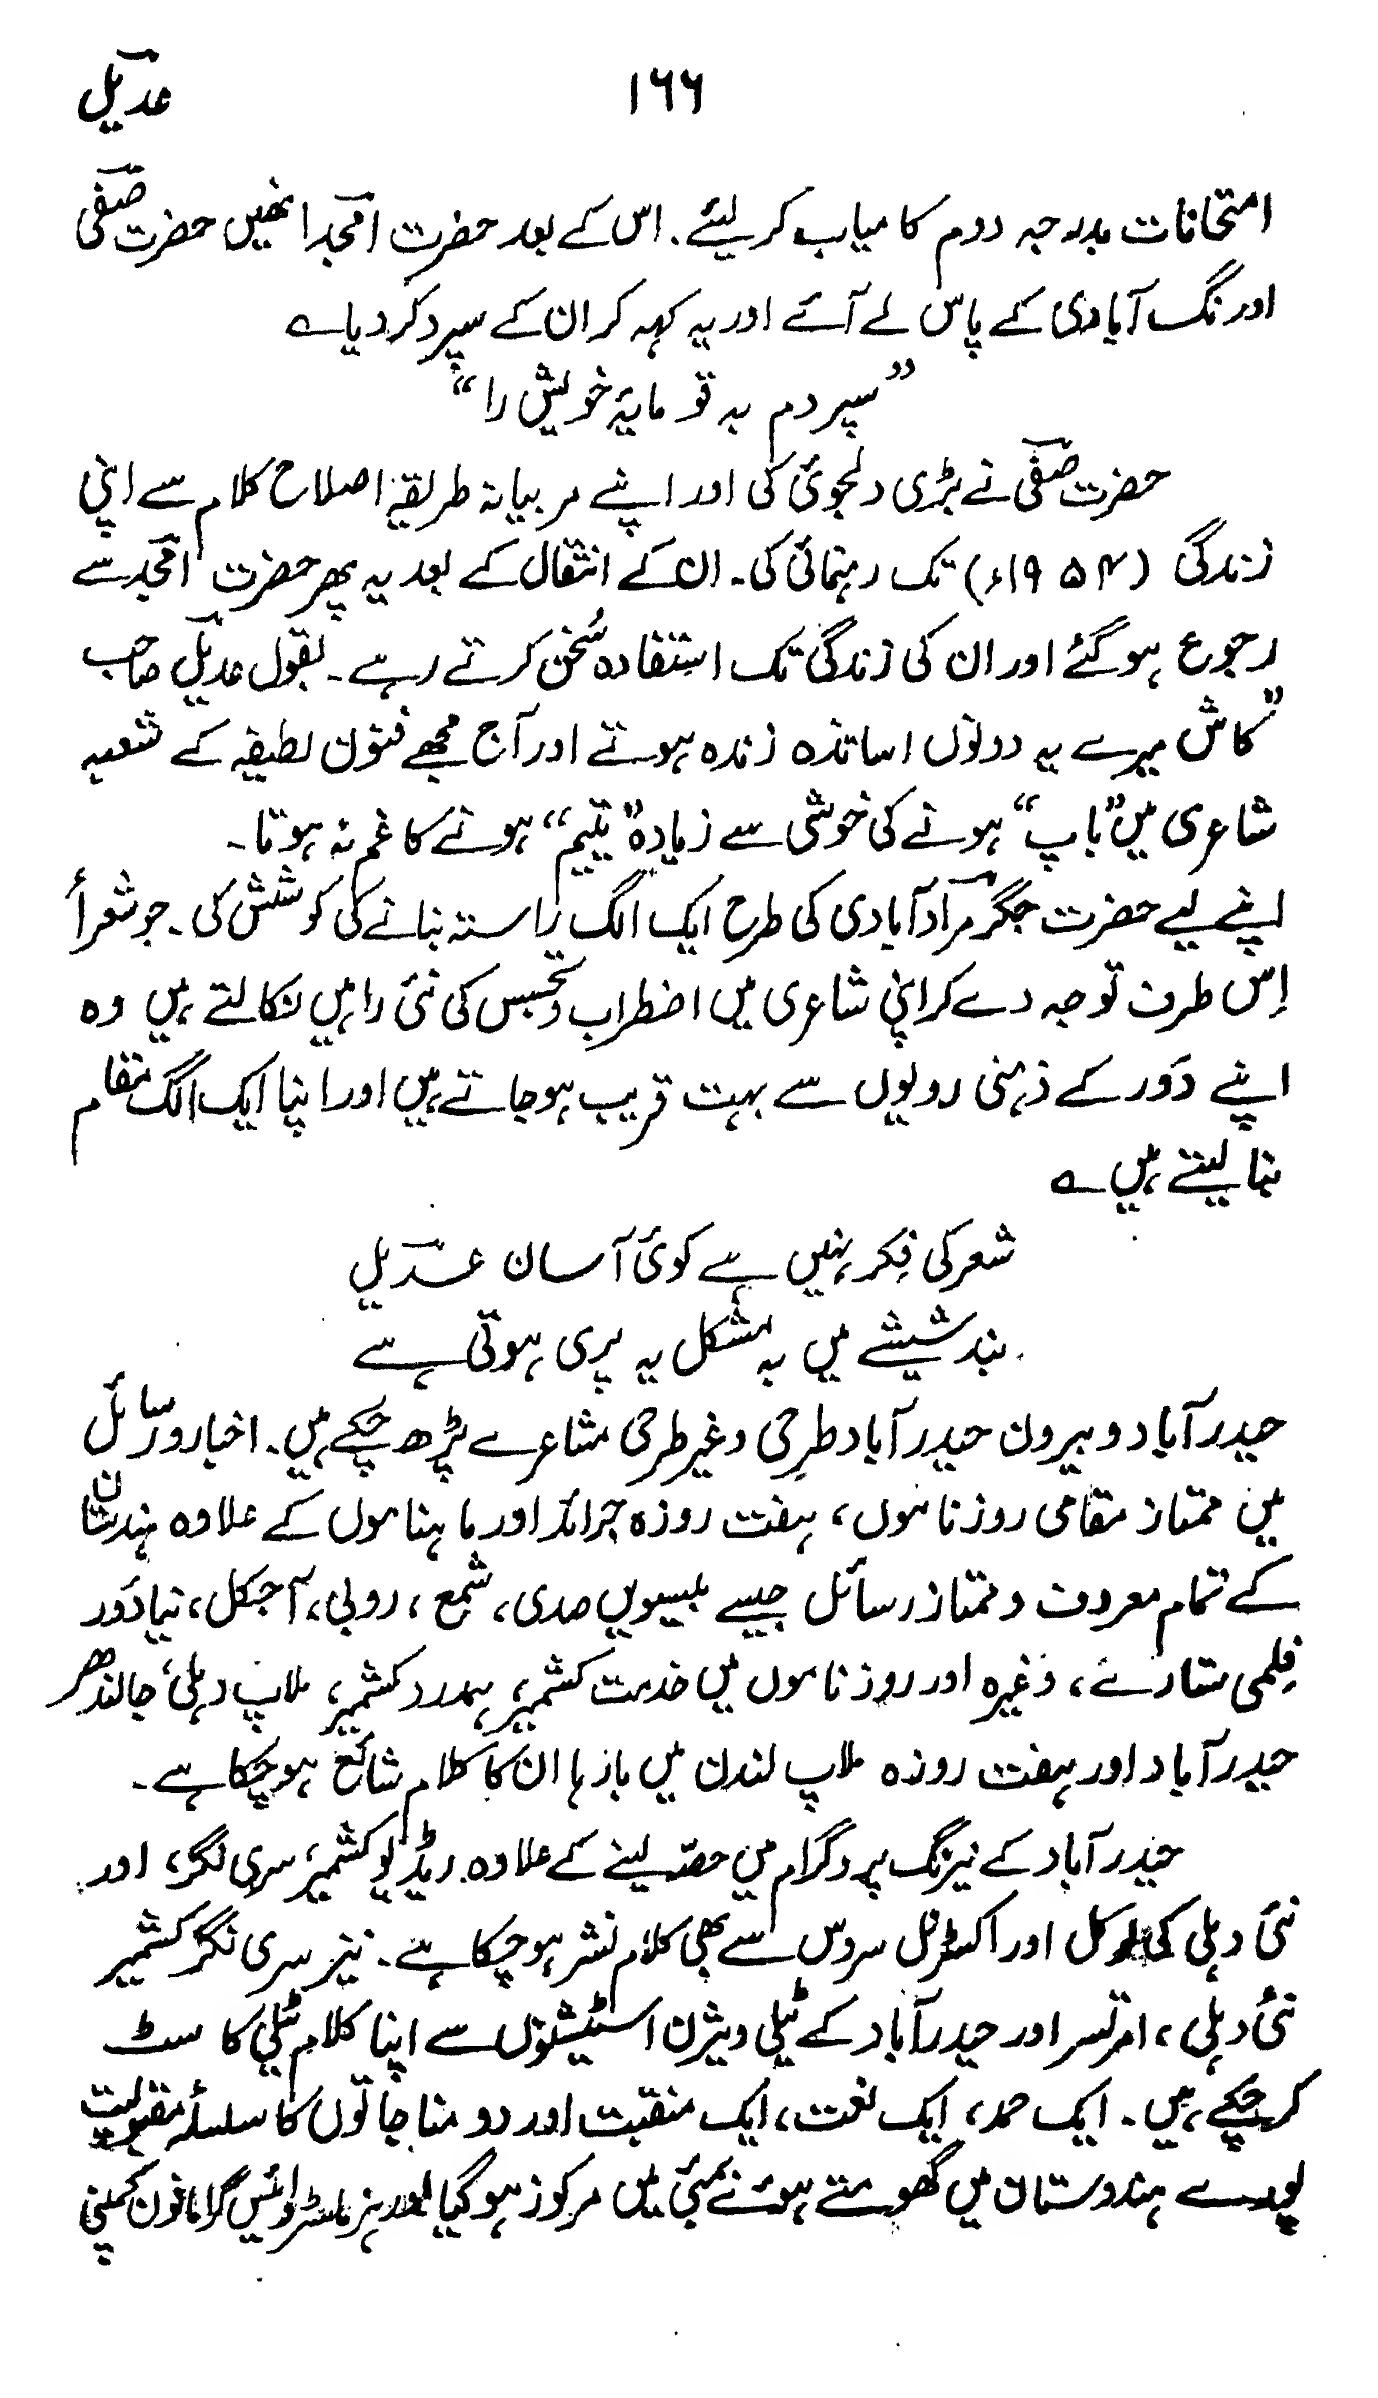 ۱۶۶ عدیلؔ
امتحانات بدرجہ دوم کامیاب کرلیئے۔ اس کے بعد حضرت امجدؔ انھیں حضرت صفیؔ
اورنگ آبادی کے پاس لے آئے اور یہ کہہ کر ان کے سپرد کردیا ؎
”سپردم بہ تو مایۂ خویش را“
حضرت صفیؔ نے بڑی دلجوئی کی اور اپنے مربیانہ طریقۂ اصلاح کلام سے اپنی
زندگی (۱۹۵۴ء) تک رہنمائی کی۔ ان کے انتقال کے بعد یہ پھر حضرت امجدؔ سے
رجوع ہوگئے اور ان کی زندگی تک استفادہ سُخن کرتے رہے۔ بقول عدیلؔ صاحب
”کاش میرے یہ دونوں اساتذہ زندہ ہوتے اور آج مجھے فنون لطیفہ کے شعبہ
شاعری میں ”باپ“ ہونے کی خوشی سے زیادہ ”یتیم“ ہونے کا غم نہ ہوتا۔
اپنے لیے حضرت جگرؔ مرادآبادی کی طرح ایک الگ راستہ بنانے کی کوشش کی۔ جو شعرأ
اِس طرف توجہ دے کر اپنی شاعری میں اضطراب و تجسس کی نئی راہیں نکالتے ہیں وہ
اپنے دَور کے ذہنی رویوں سے بہت قریب ہوجاتے ہیں اور اپنا ایک الگ مقام
بنا لیتے ہیں ؎
شعر کی فِکر نہیں ہے کوئی آسان عدیلؔ
بند شیشے میں بہ مشکل یہ پری ہوتی ہے
حیدرآباد و بیرون حیدرآباد طرحی و غیر طرحی مشاعرے پڑھ چکے ہیں۔ اخبار و رسائل
میں ممتاز مقامی روزناموں، ہفت روزہ جرائد اور ماہناموں کے علاوہ ہندستان
کے تمام معروف و ممتاز رسائل جیسے بیسویں صدی، شمع، روبی، آجکل، نیا دَور
فلمی ستارے، وغیرہ اور روزناموں میں خدمت کشمیر، ہمدرد کشمیر، ملاپ دہلی، جالندھر
حیدرآباد اور ہفت روزہ ملاپ لندن میں بارہا ان کا کلام شائع ہوچکا ہے۔
حیدرآباد کے نیرنگ پروگرام میں حصّہ لینے کے علاوہ ریڈیو کشمیر، سری نگر، اور
نئی دہلی کی لوکل اور اکسٹرنل سروس سے بھی کلام نشر ہوچکا ہے۔ نیز سری نگر کشمیر
نئی دہلی، امرتسر اور حیدرآباد کے ٹیلی ویژن اسٹیشنوں سے اپنا کلام ٹیلی کاسٹ
کرچکے ہیں۔ ایک حمد، ایک نعت، ایک منقبت اور دو مناجاتوں کا سلسلۂ مقبولیت
پورے ہندوستان میں گھومتے ہوئے بمبئی میں مرکوز ہوگیا اور ہز ماسٹر وائس گراما فون کمپنی